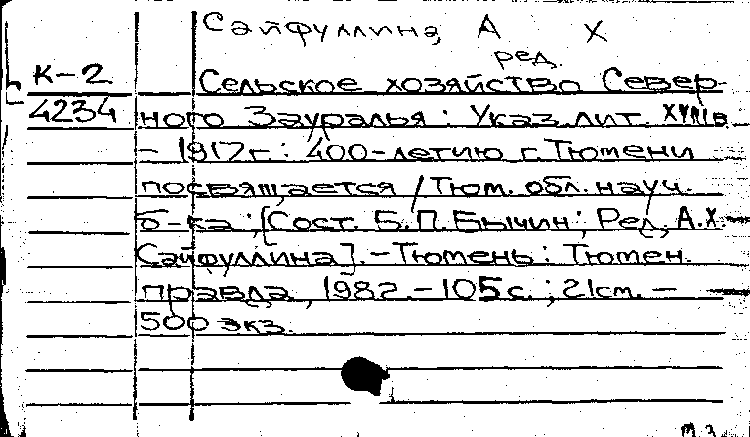 Сайфуллина, А Х
ред.
К-2
4234
Сельское хозяйство Север-
ного Зауралья: Указ. лит. XVIIIв
- 1917г.: 400-летию г. Тюмени
посвящается / Тюм. обл. науч.
б-ка; [Сост. Б.П. Бычин; Ред. А.Х.
Сайфуллина]. - Тюмень: Тюмен.
правда, 1982. - 105с.; 21см. -
500 экз.